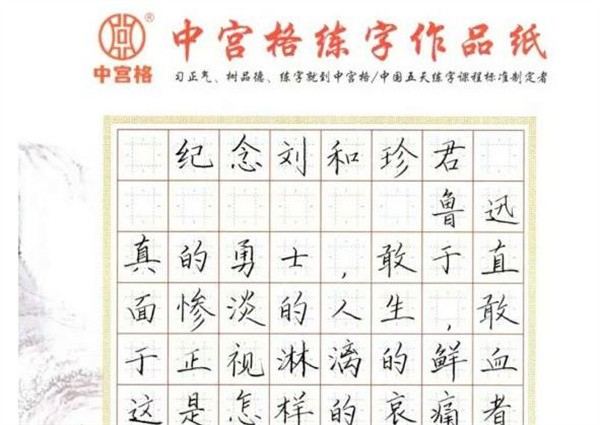 中宫格练字作品纸
®
中宫格
习正气、树品德、练字就到中宫格/中国五天练字课程标准制定者
纪念刘和珍君
鲁迅
真的勇士，敢于直
面惨淡的人生，敢
于正视淋漓的鲜血
这是怎样的哀痛者